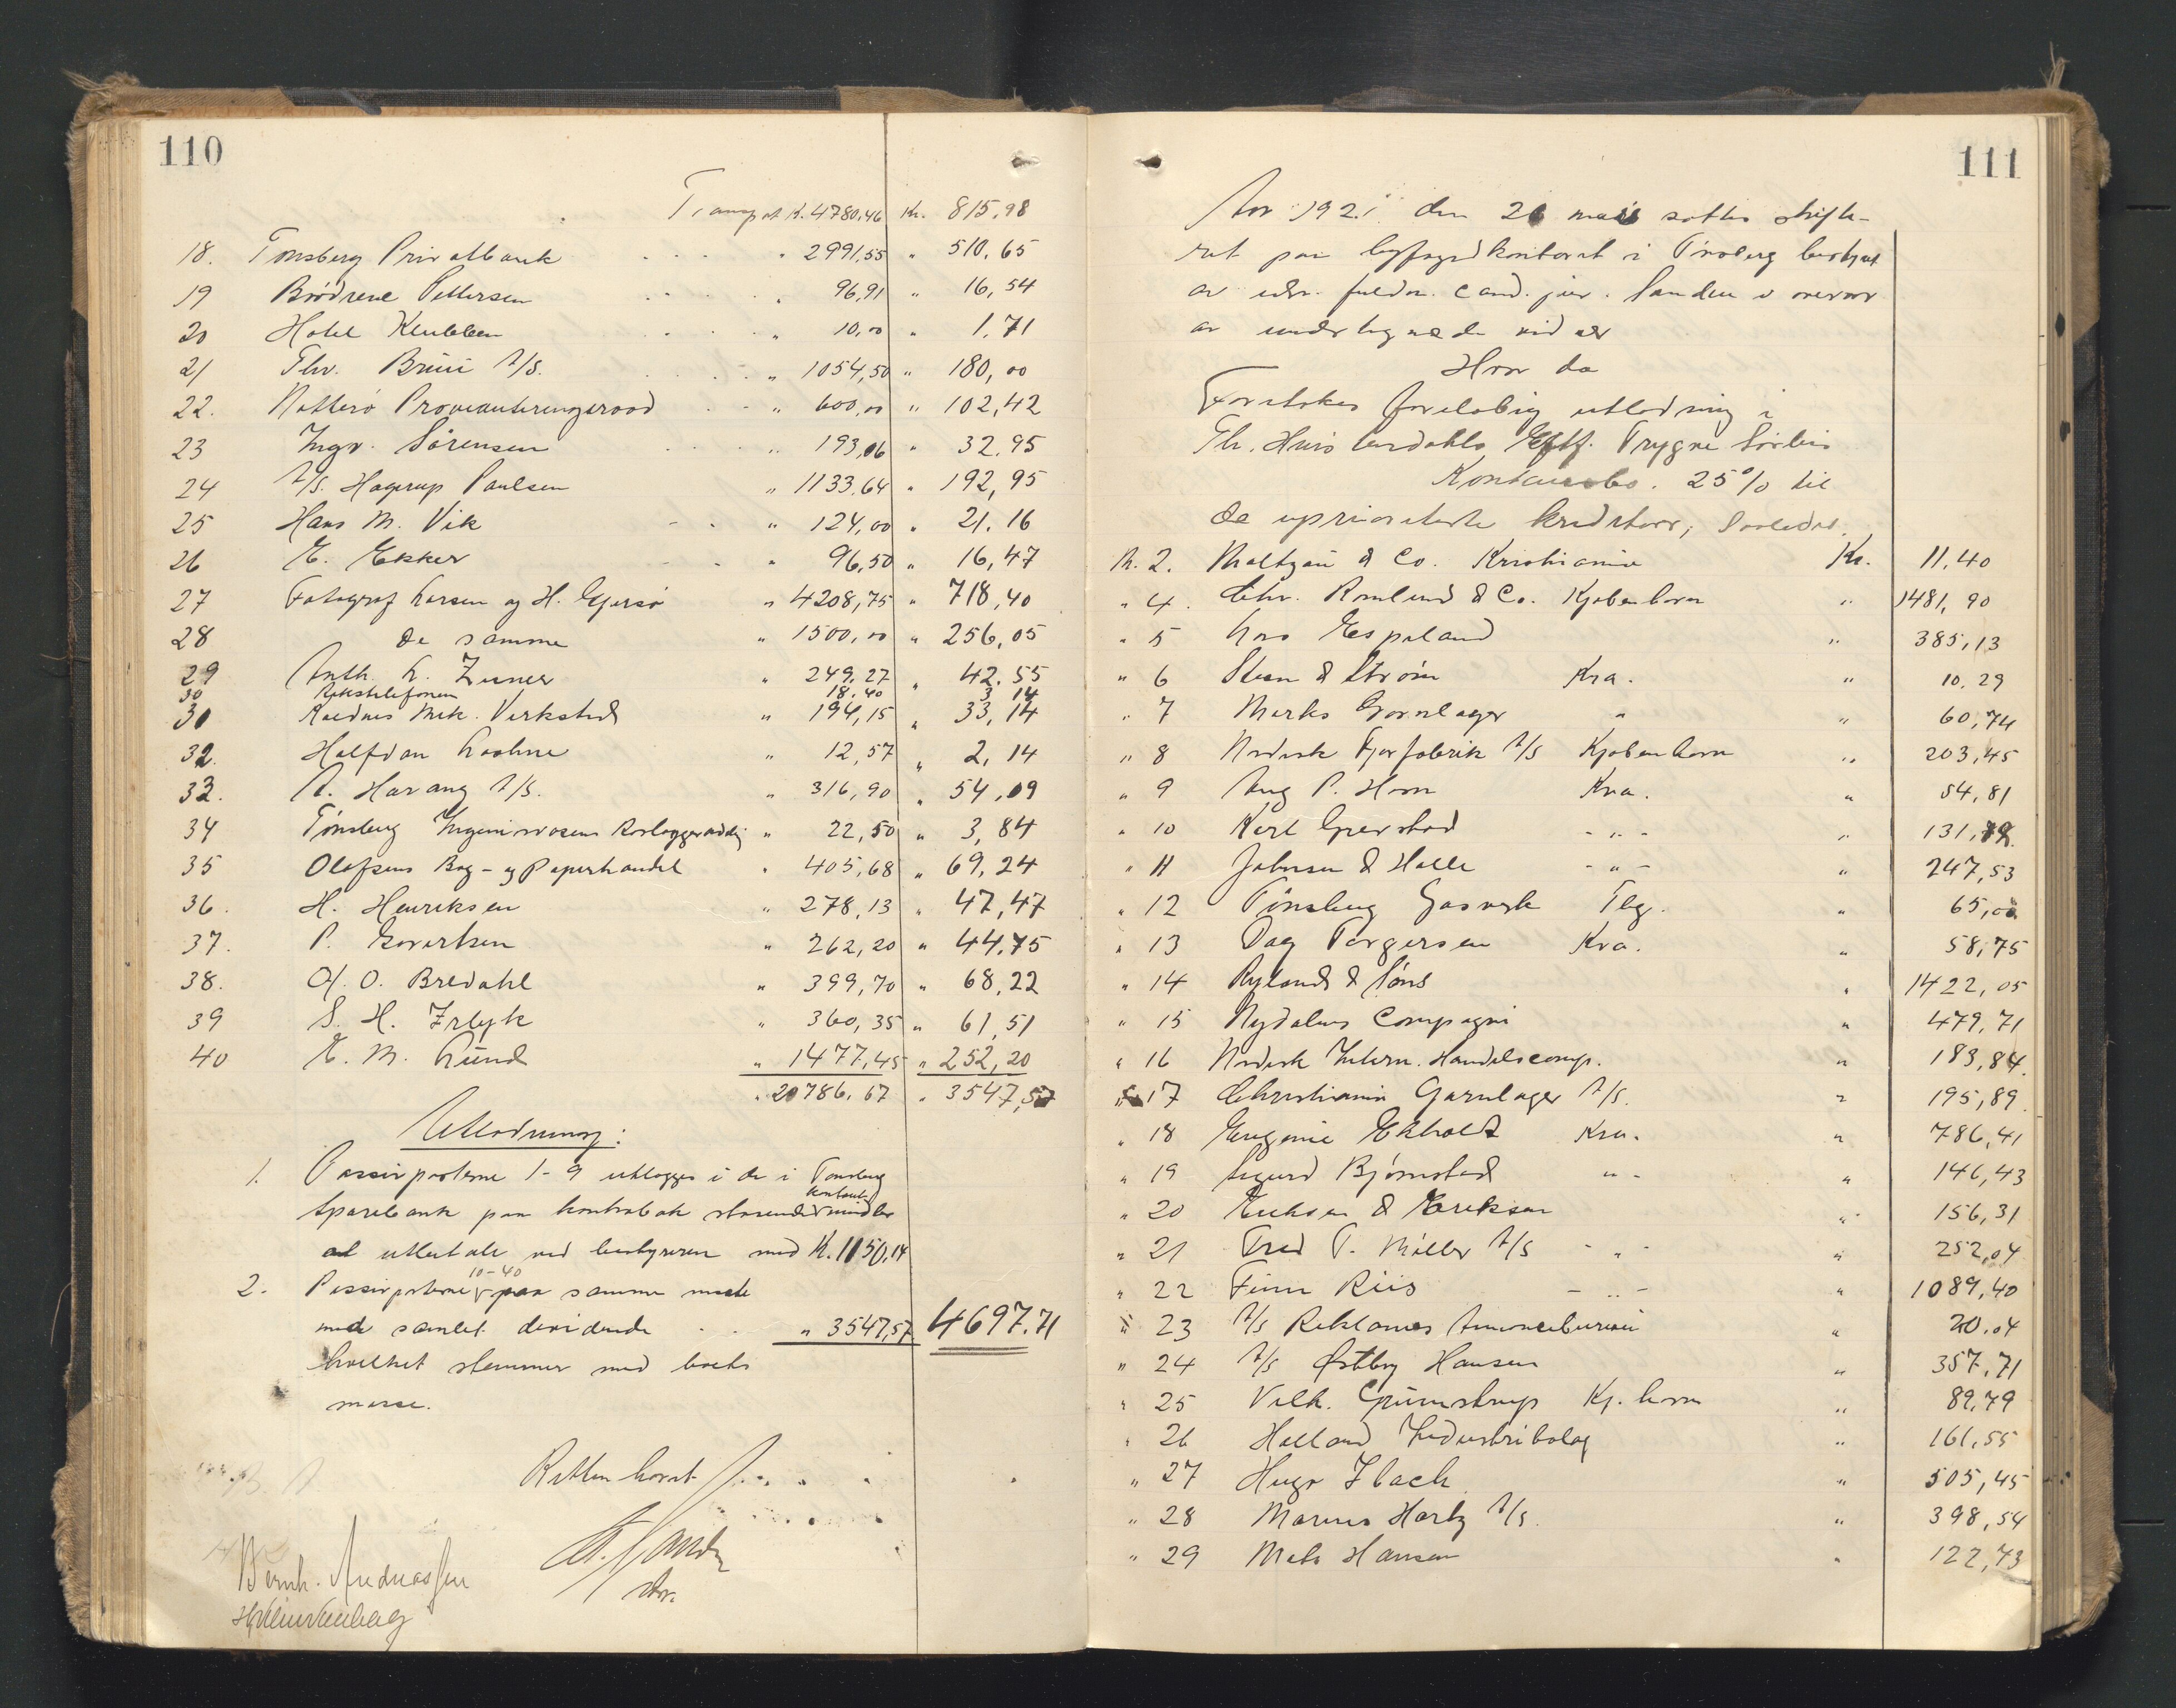 110
Transport K. 4780,46 Kr. 815,98
18. Tønsberg Privatbank " 2991,55 " 510,65
19 Brødrene Pettersen " 96,91 " 16,54
20 Hotel Klubben " 10,00 " 1,71
21 Thv. Bruu A/S. " 1054,50 " 180,00
22. Nøtterø Provianteringsraad " 600,00 " 102,42
23 Ingv. Sørensen " 193,06 " 32,95
24 A/S. Hagerup Paulsen " 1133,64 " 192,95
25 Hans M. Vik " 124,00 " 21,16
26 E. Ekker " 96,50 " 16,47
27 Fotograf Larsen og H. Gjersø " 4208,75 " 718,40
28 De samme " 1500,00 " 256,05
29 Anth. L. " 249,27 " 42,55
30 Rikstelefonen 18,40 3,14
31 Kaldnes Mek. Verksted " 194,15 " 33,14
32. Halfdan " 12,57 " 2,14
33. A. Harang A/S. " 316,90 " 54,09
34 Tønsberg " 22,50 " 3,84
35 Olafsens Bog- og Papirhandel " 405,68 " 69,24
36. H. Henriksen " 278,13 " 47,47
37. P. " 262,20 " 44,75
38. O. Bredahl " 399,70 " 68,22
39 S. H. " 360,35 " 61,51
40 E. M. Lund " 1477,45 " 252,20
" 20786,67 " 3547,57
Utlodning:
1. Passivposterne 1-9 utlægges i de i Tønsberg
Sparebank paa kontrabok staaende kontante midler
at utbetale ved bestyreren med K. 1150,14
2. Passivposterne 10-40 paa samme maate
med samlet dividende " 3547,57 4697.71
hvilket stemmer med boets
masse.
Retten hævet
Bernh. Andreassen
111
Aar 1921 den 26 mai sattes skifte-
ret paa byfogedkontoret i Tønsberg bestyret
av edsv. fuldm. cand. jur. Sanden i overvær
av undertegnede vidner
Hvor da
Foretokes foreløbig utlodning i
Th. Eftf. Trygve Sørbis
Konkursbo. 25% til
de uprioriterte kreditorer, saaledes.
N. 2. Maltzau & Co. Kristiania Kr. 11,40
" 4. Chr. Romlund & Co. Kjøbenhavn " 1481,90
" 5 Lars Espeland " 385,13
" 6 Steen & Strøm Kra. " 10,29
" 7 Merks Garnlager " " 60,74
" 8 Nordisk Fjærfabrik A/S Kjøbenhavn " 203,45
" 9 Aug P. Horn Kra. " 54,81
" 10 Karl Grevstad - " - " 131,
" 11 Johnsen & Halle - " - " 247,53
" 12 Tønsberg Gasverk Tbg. " 65,00
" 13 Dag Torgersen Kra. " 58,75
" 14 Rylands & Søns " 1422,05
" 15 Nydalens Compagni " 479,71
" 16 Nordisk Intern. Handelscomp. " 183,84
" 17 Christiania Garnlager A/S. " 195,89
" 18 Eugenie Ekholdt Kra. " 786,41
" 19 Sigurd Bjørnstad " - " 146,43
" 20 Eriksen & Eriksen " 156,31
" 21 Fred T. Møller A/S - " - " 252,04
" 22 Finn Riis - " - " 1089,40
" 23 A/S Reklames Annoncebureau " 20,04
" 24 A/S Østbry Hansen " 357,71
" 25 Vilh. Grünstrup Kj. havn " 89,79
" 26 Halland Industribolag " 161,55
" 27 Hugo Ibach " 505,45
" 28 Marius Hartz A/S. " 398,54
" 29 Mats Hansen " 122,73